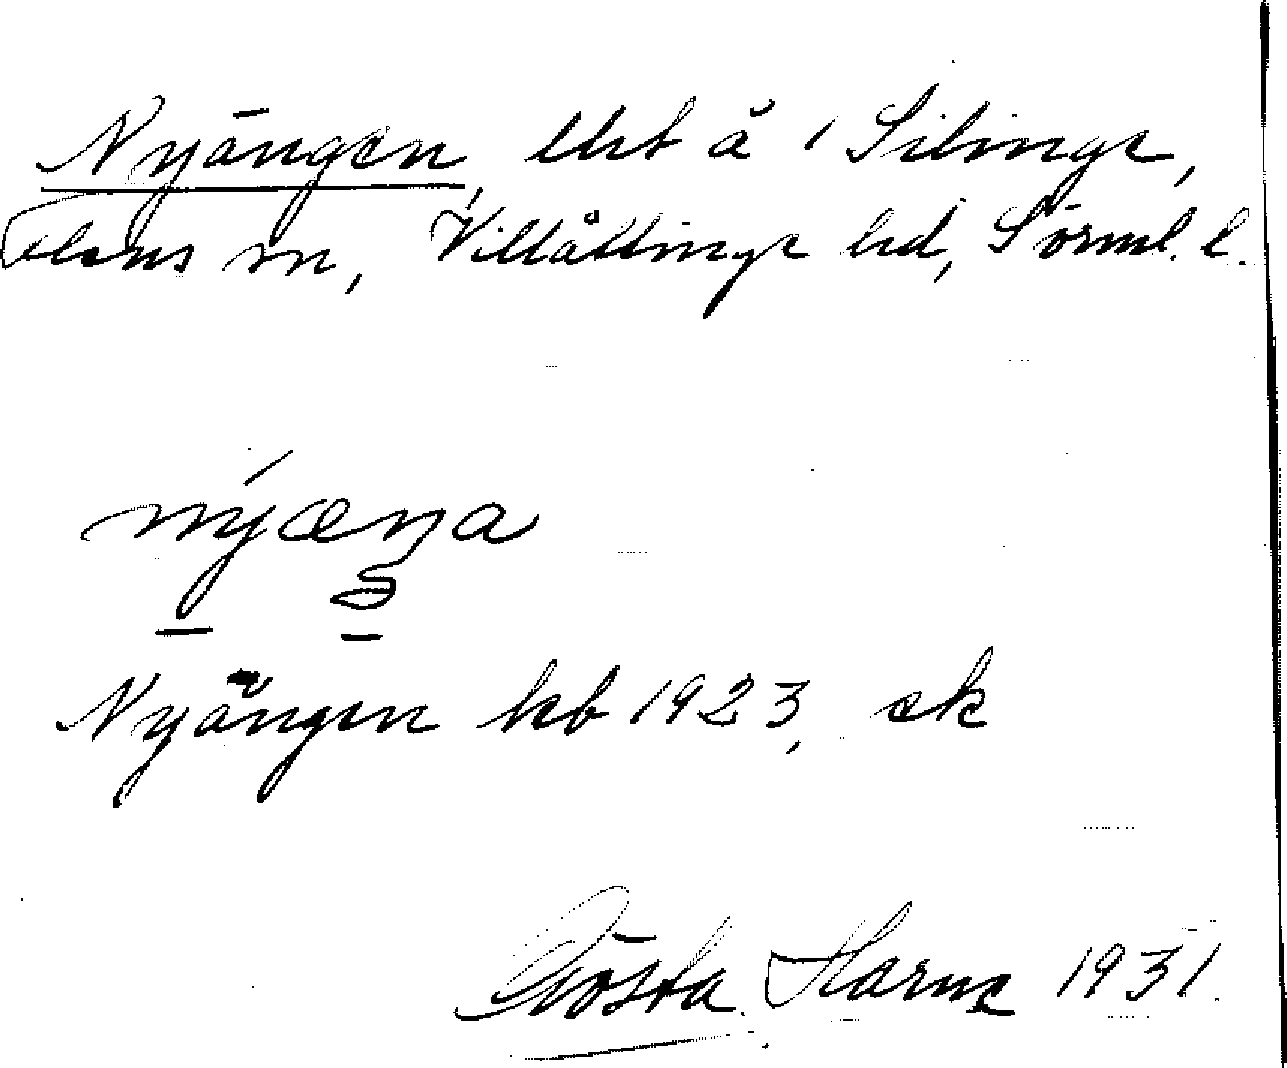 Nyängen, lht å 1 Silinge,
Flens sn, Villåttinge hd, Sörml. l.
nýæŋa
Nyängen kb 1923, ek
Gösta Harne 1931.